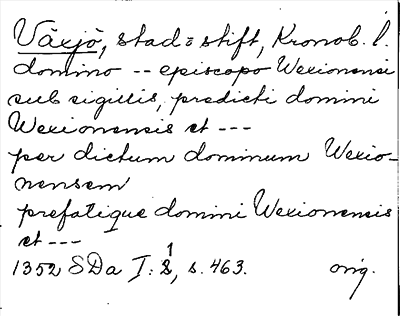 Växjö, stad = stift, Kronob. l.
domino -- episcopo Wexionensi
sub sigillis, predicti domini
Wexionensis et ---
per dictum dominum Wexio-
nensem
prefatique domini Wexionensis
et ---
1352 SDa I: 1, s. 463. orig.